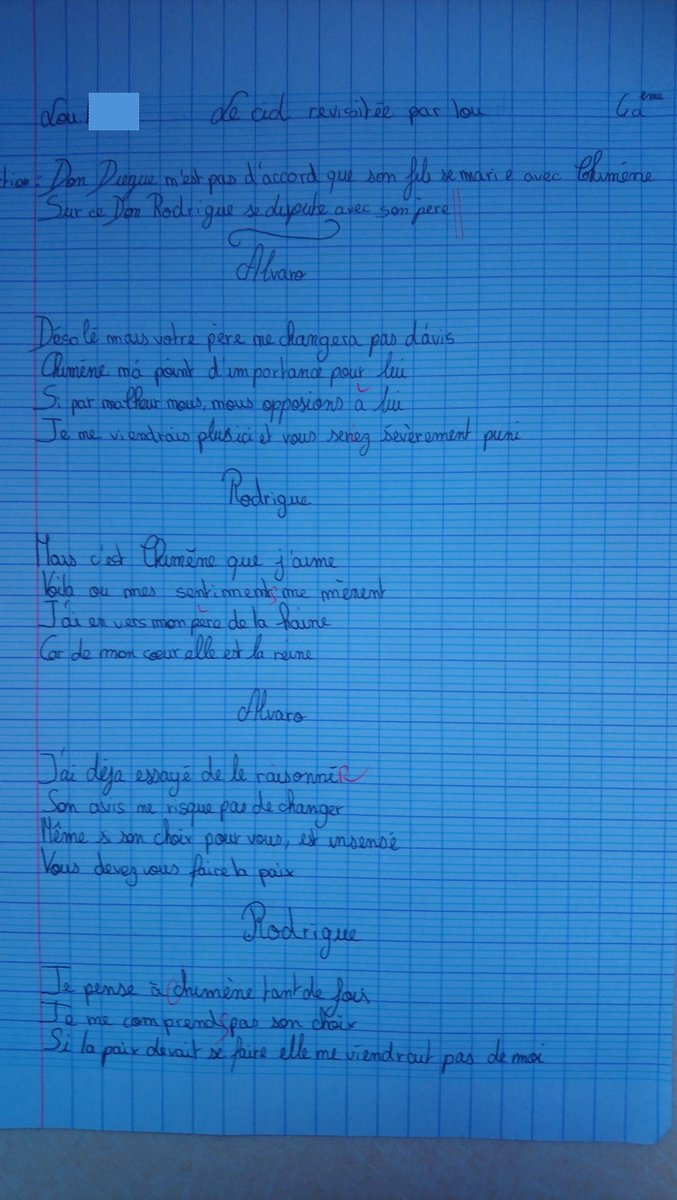 Lou
Le cid revisitée par lou
Ca ème
tion: Don Diegue n'est pas d'accord que son fils se marie avec Chimène
Sur ce Don Rodrigue se dispute avec son père
Alvaro
Désolé mais votre père ne changera pas d'avis
Chimène n'a point d'importance pour lui
Si par malheur nous, nous opposions à lui
Je ne viendrais plus ici et vous seriez sévèrement puni
Rodrigue
Mais c'est Chimène que j'aime
Voila ou mes sentiments me mènent
J'ai en vers mon père de la haine
Car de mon cœur elle est la reine
Alvaro
J'ai déja essayé de le raisonner
Son avis ne risque pas de changer
Même si son choix pour vous, est insensé
Vous devez vous faire la paix
Rodrigue
Je pense à chimène tant de fois
Je ne comprends pas son choix
Si la paix devait se faire elle ne viendrait pas de moi